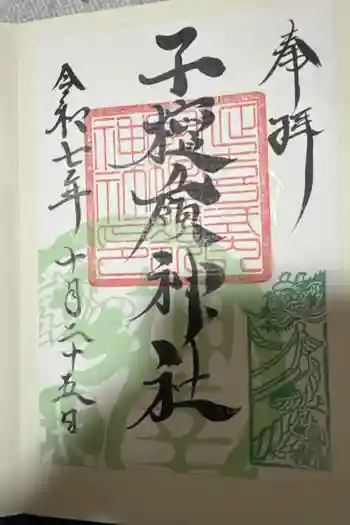 奉拝
子檀嶺神社
令和七年十月二十五日